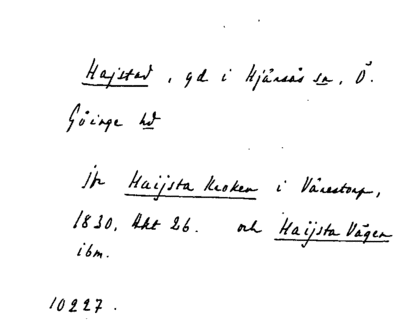 Hajstad, gd i Hjärsås sn, Ö.
Göinge hd
jfr Haijsta Kroken i Vånestorp,
1830, Akt 26. och Haijsta Vägen
ibm.
10227.